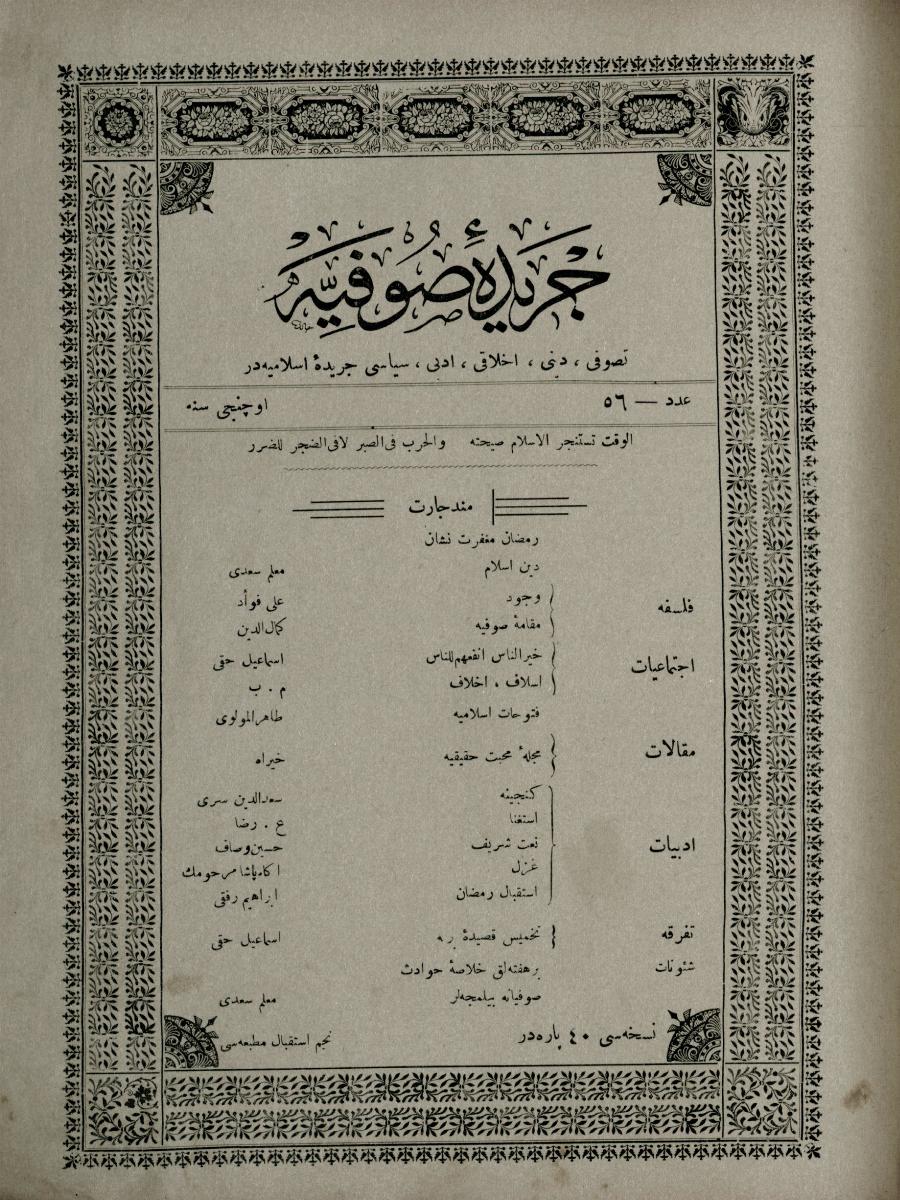 جريدۀ صوفيه
تصوفى ، دينى ، اخلاقى ، ادبى ، سياسى جريدۀ اسلاميه‌در
عدد — ٥٦ اوچنجى سنه
الوقت تستنجر الاسلام صيحته والحرب فى الصبر لافى الضجر للضرر
مندرجات
رمضان مغفرت نشان
دين اسلام معلم سعدى
فلسفه
وجود على فوأد
مقامۀ صوفيه كمال‌الدين
اجتماعيات
خيرالناس انفعهم‌للناس اسماعيل حقى
اسلاف ، اخلاف م . ب
فتوحات اسلاميه طاهرالمولوى
مقالات
مجلۀ محبت حقيقيه خيراه
ادبيات
كنجينه سعدالدين سرى
استغنا ع . رضا
نعت شريف حسين‌وصاف
غزل پاشا مرحومك
استقبال رمضان ابراهيم رفقى
تفرقه
تخميس قصيدۀ اسماعيل حقى
شئونات
برهفته‌لق خلاصۀ حوادث
صوفيانه بيلمجه‌لر معلم سعدى
نسخه‌سى ٤٠ پاره‌در نجم استقبال مطبعه‌سى